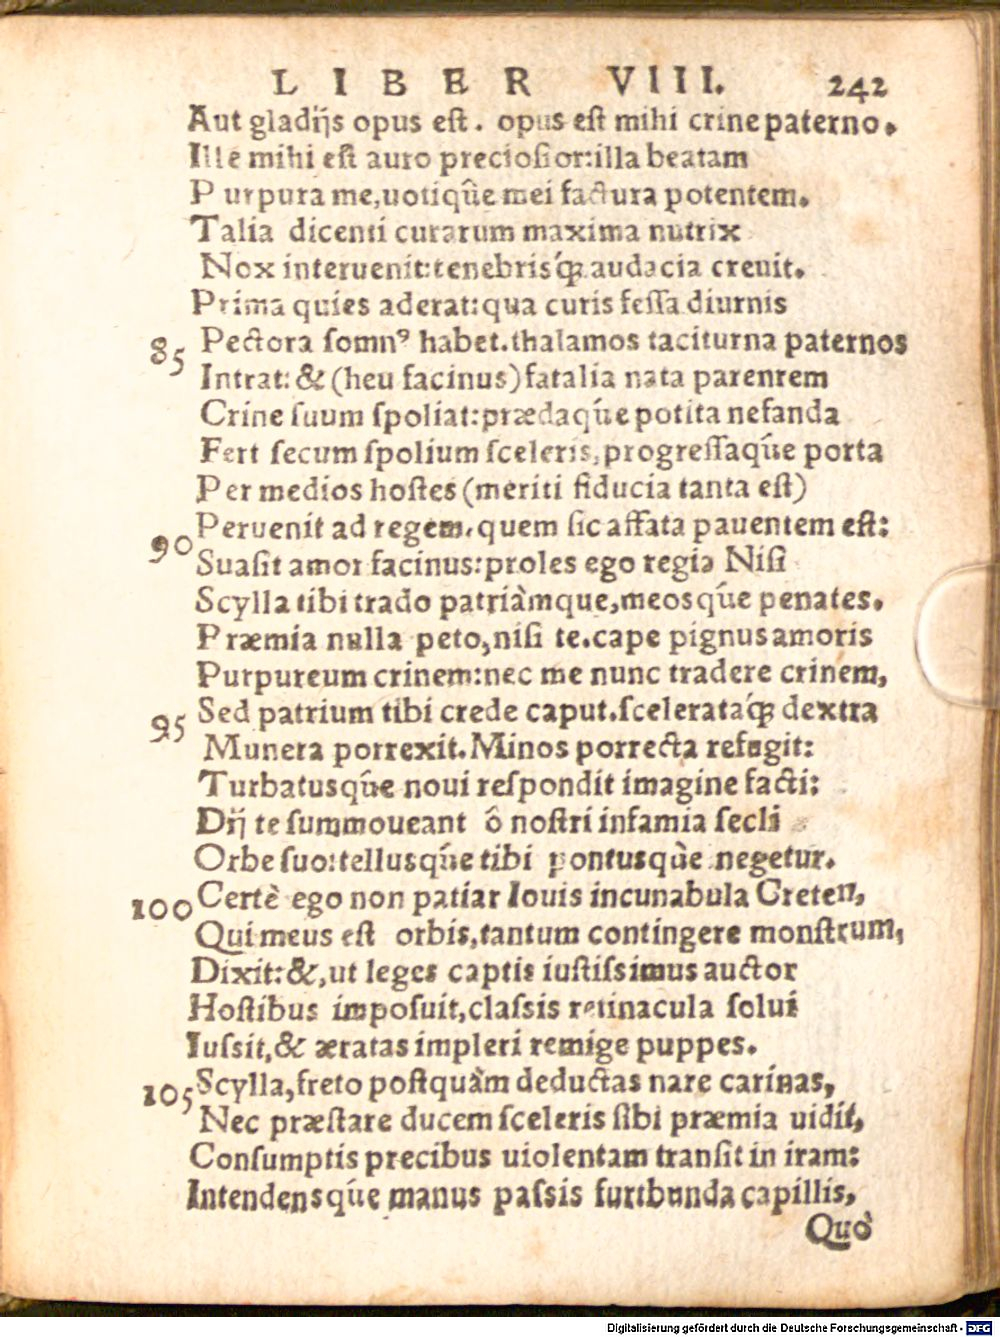 LIBER VIII. 242
Aut gladijs opus est. opus est mihi crine paterno.
Ille mihi est auro preciosior: illa beatam
Purpura me, uotiq́ue mei factura potentem.
Talia dicenti curarum maxima nutrix
Nox interuenit: tenebrisq́; audacia creuit.
Prima quies aderat: qua curis fessa diurnis
85 Pectora somnꝰ habet. thalamos taciturna paternos
Intrat: & (heu facinus) fatalia nata parentem
Crine suum spoliat: prædaq́ue potita nefanda
Fert secum spolium sceleris, progressaq́ue porta
Per medios hostes (meriti fiducia tanta est)
90 Peruenit ad regem, quem sic affata pauentem est:
Suasit amor facinus: proles ego regia Nisi
Scylla tibi trado patriàmque, meosq́ue penates.
Præmia nulla peto, nisi te. cape pignus amoris
Purpureum crinem: nec me nunc tradere crinem,
95 Sed patrium tibi crede caput. scelerataq́; dextra
Munera porrexit. Minos porrecta refugit:
Turbatusq́ue noui respondit imagine facti:
Dij te summoueant ô nostri infamia secli
Orbe suo: tellusq́ue tibi pontusq̀ue negetur.
100 Certè ego non patiar Iouis incunabula Creten,
Qui meus est orbis, tantum contingere monstrum,
Dixit: &, ut leges captis iustissimus auctor
Hostibus imposuit, classis retinacula solui
Iussit, & æratas impleri remige puppes.
105 Scylla, freto postquàm deductas nare carinas,
Nec præstare ducem sceleris sibi præmia uidit,
Consumptis precibus uiolentam transit in iram:
Intendensq́ue manus passis furibunda capillis,
Quò
Digitalisierung gefördert durch die Deutsche Forschungsgemeinschaft - DFG